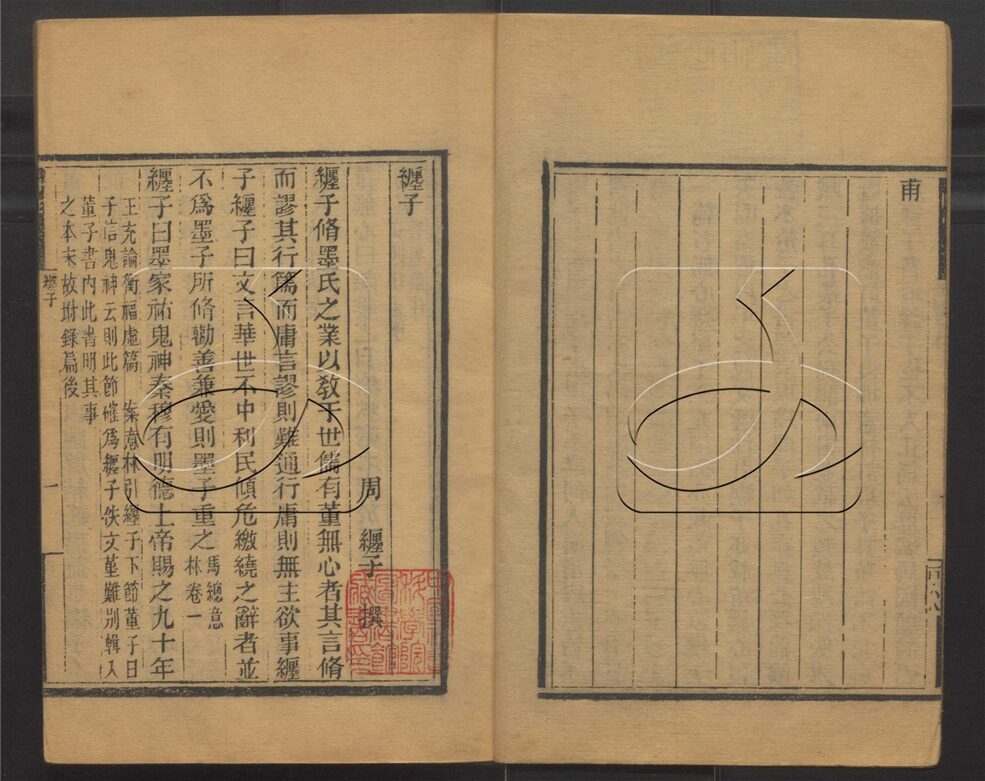 甫
纏子
周　纏子　撰
纏子脩墨氏之業以敎于世儒有董無心者其言脩
而謬其行篤而庸言謬則難通行庸則無主欲事纏
子纏子曰文言華世不中利民傾危繳繞之辭者並
不爲墨子所脩勸善兼愛則墨子重之馬總意
林卷一
纏子曰墨家祐鬼神秦穆有明德上帝賜之九十年
王充論衡福虛篇　案意林引纏子下節董子曰
子信鬼神云則此節確爲纏子佚文董難別輯入
董子書內此書明其事
之本末故坿錄篇後
纏子
一